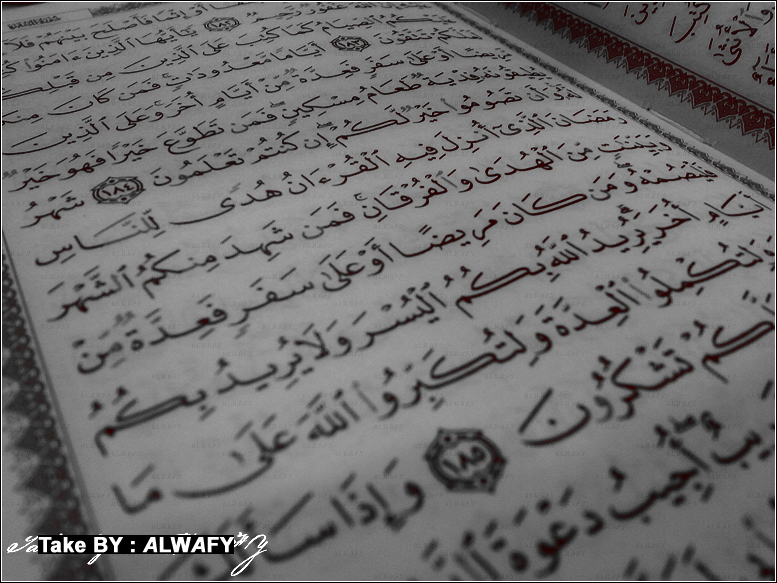 فَأَصْلَحَ بَيْنَهُمْ فَلَا
يَٰٓأَيُّهَا ٱلَّذِينَ ءَامَنُوا۟
ٱلصِّيَامُ كَمَا كُتِبَ عَلَى ٱلَّذِينَ مِن قَبْلِكُمْ
تَتَّقُونَ ١٨٣ أَيَّامًا مَّعْدُودَٰتٍ فَمَن كَانَ مِنكُم
مَّرِيضًا أَوْ عَلَىٰ سَفَرٍ فَعِدَّةٌ مِّنْ أَيَّامٍ أُخَرَ وَعَلَى ٱلَّذِينَ
يُطِيقُونَهُۥ فِدْيَةٌ طَعَامُ مِسْكِينٍ فَمَن تَطَوَّعَ خَيْرًا فَهُوَ خَيْرٌ
لَّهُۥ وَأَن تَصُومُوا۟ خَيْرٌ لَّكُمْ إِن كُنتُمْ تَعْلَمُونَ ١٨٤ شَهْرُ
رَمَضَانَ ٱلَّذِىٓ أُنزِلَ فِيهِ ٱلْقُرْءَانُ هُدًى لِّلنَّاسِ
وَبَيِّنَٰتٍ مِّنَ ٱلْهُدَىٰ وَٱلْفُرْقَانِ فَمَن شَهِدَ مِنكُمُ ٱلشَّهْرَ
فَلْيَصُمْهُ وَمَن كَانَ مَرِيضًا أَوْ عَلَىٰ سَفَرٍ فَعِدَّةٌ مِّنْ
أَيَّامٍ أُخَرَ يُرِيدُ ٱللَّهُ بِكُمُ ٱلْيُسْرَ وَلَا يُرِيدُ بِكُمُ
وَلِتُكْمِلُوا۟ ٱلْعِدَّةَ وَلِتُكَبِّرُوا۟ ٱللَّهَ عَلَىٰ مَا
تَشْكُرُونَ ١٨٥ وَإِذَا
أُجِيبُ دَعْوَةَ
Take BY : ALWAFY